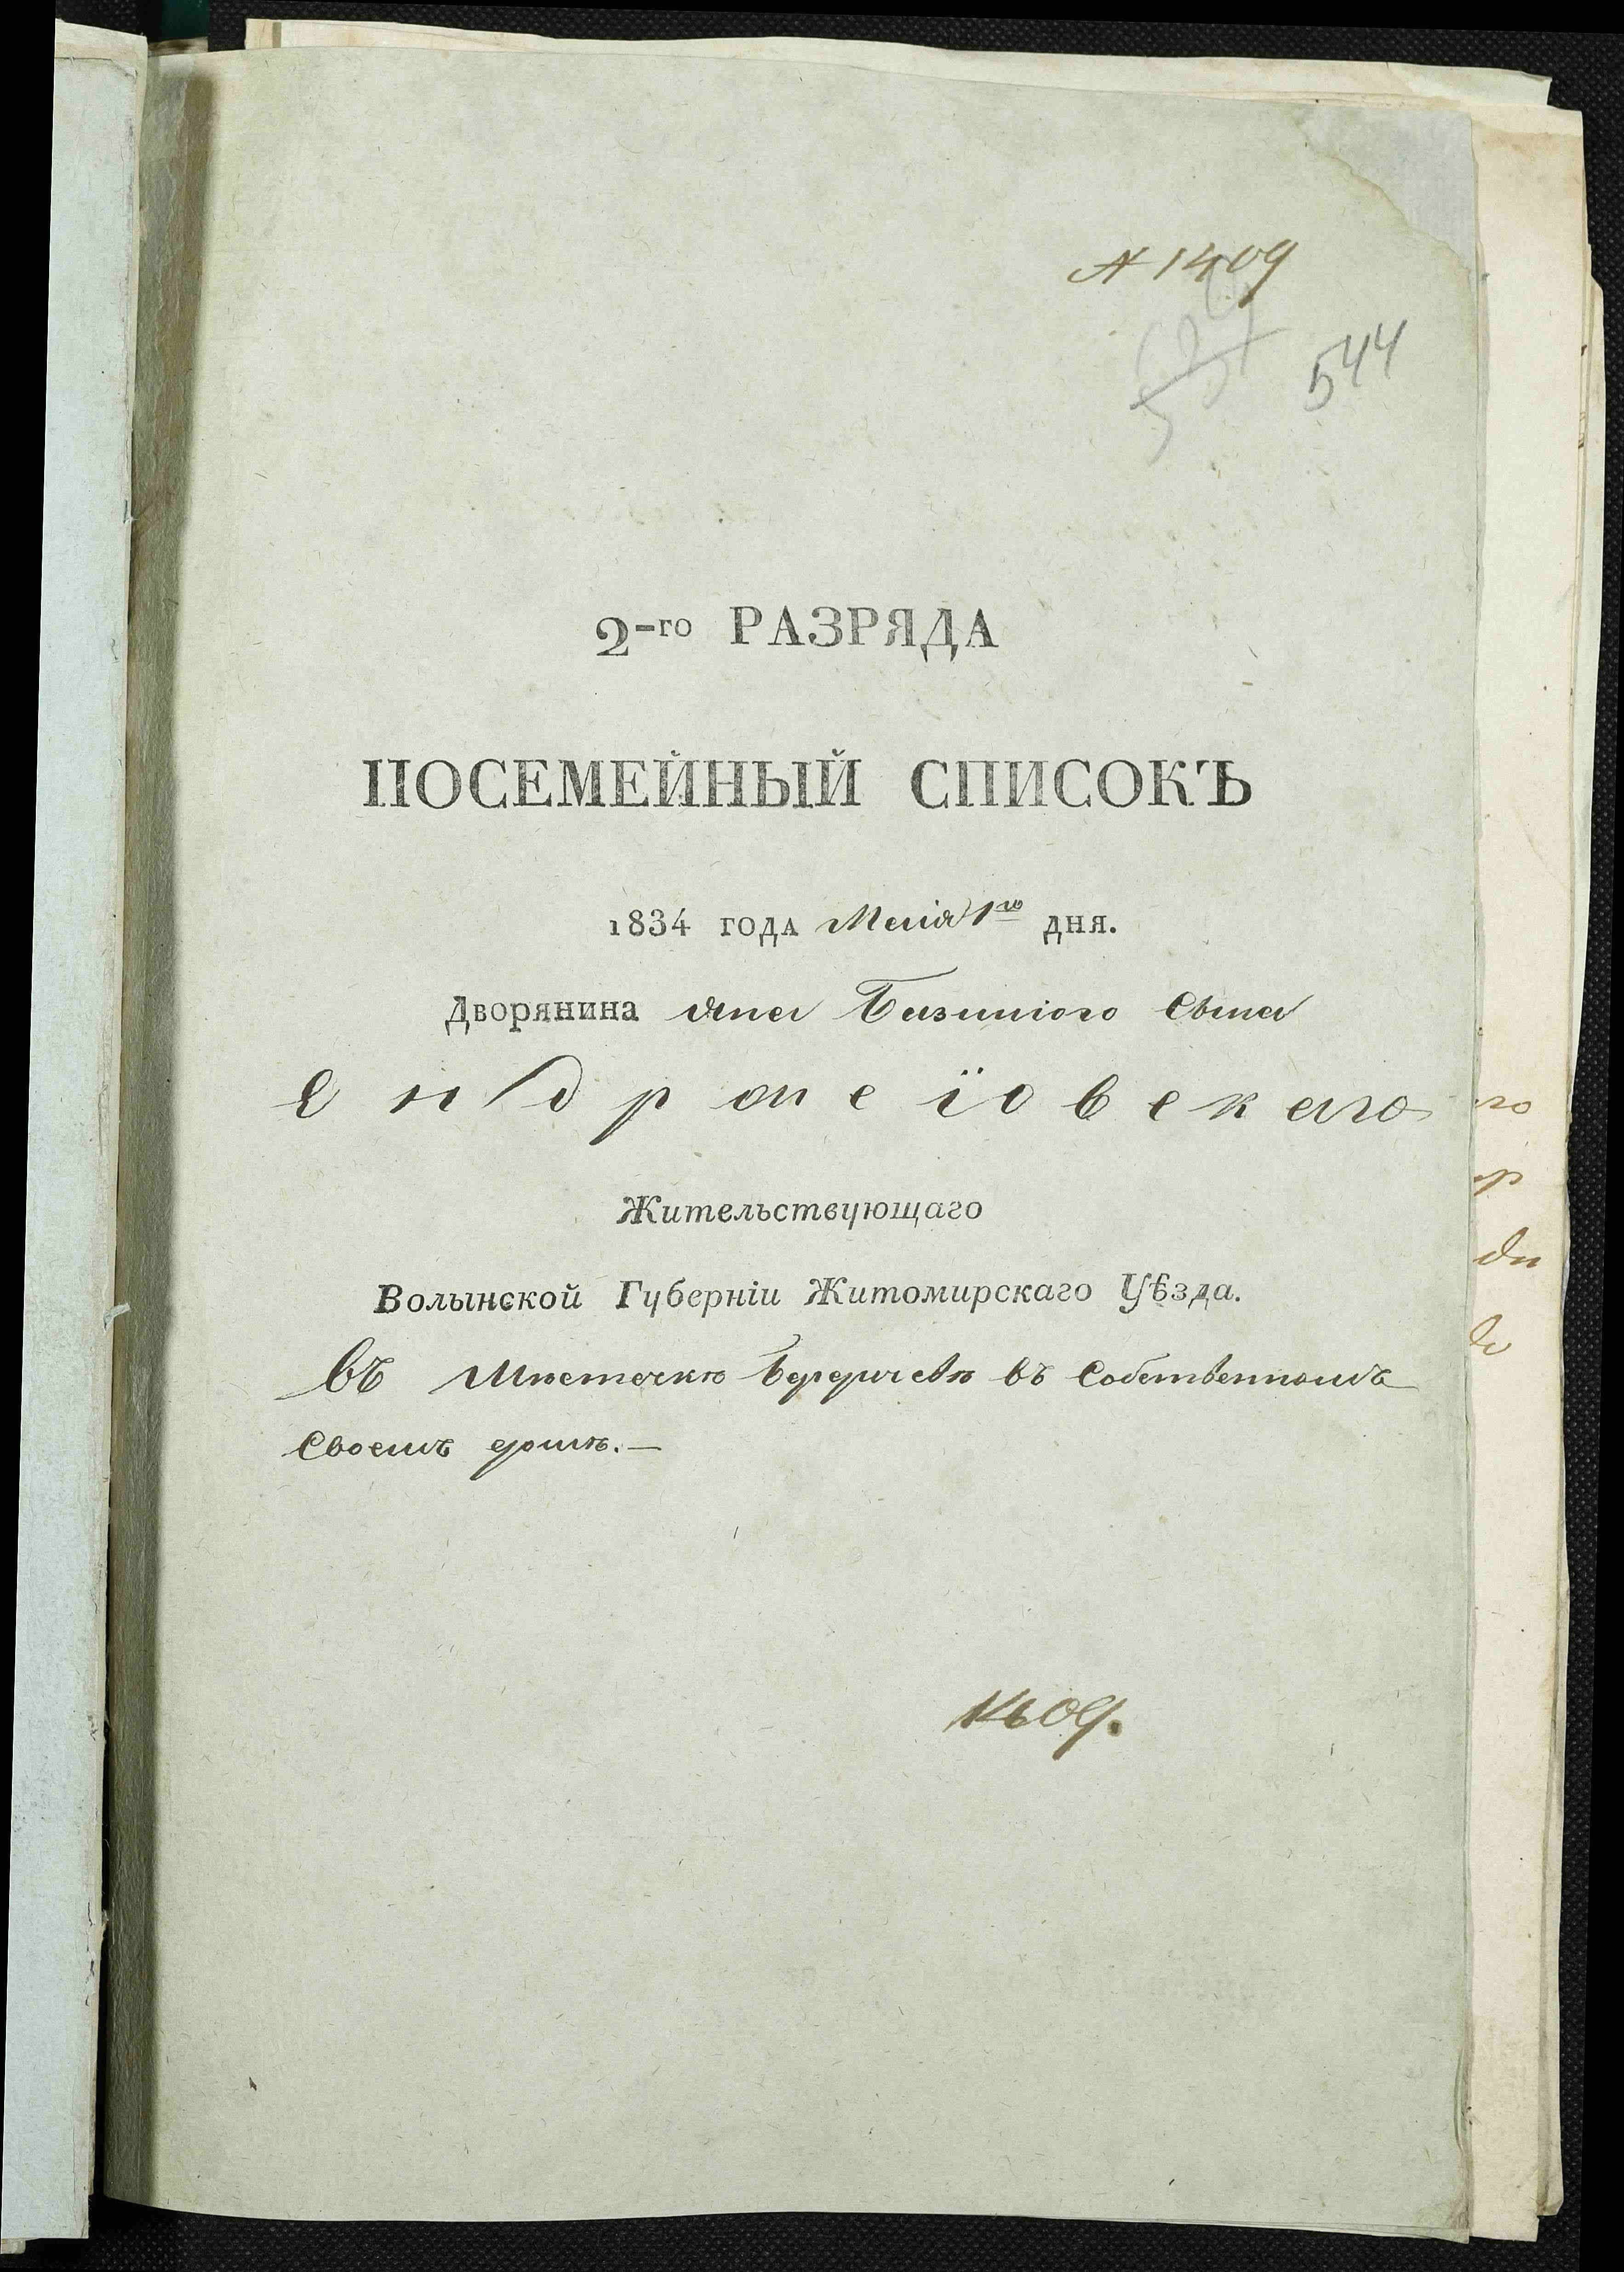 № 1409
544
2-го РАЗРЯДА
ПОСЕМЕЙНЫЙ СПИСОКЪ
1834 года Маія 1го дня.
Дворянина Яна Базилiого Сына
Ендржеїовскаго
Жительствующаго
Волынской Губерніи Житомирскаго Уѣзда.
Въ Мѣстечкѣ Бердичевѣ въ Собственномъ
Своемъ домѣ.—
1409.